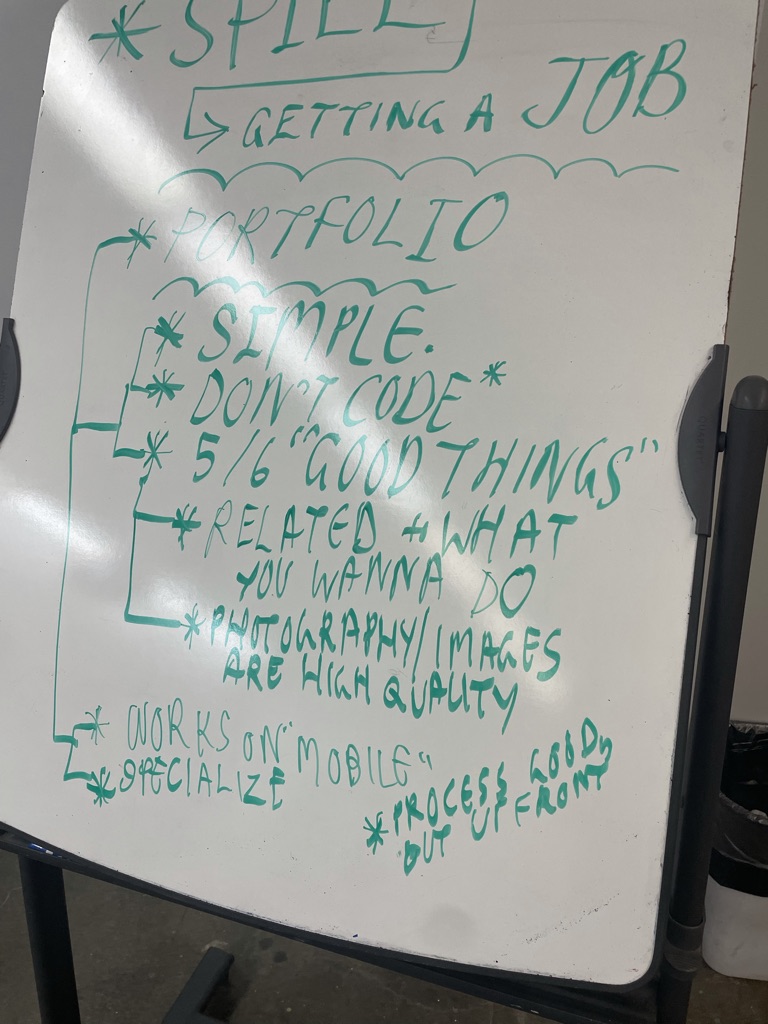 * SPIEL
↳ GETTING A JOB
* PORTFOLIO
* SIMPLE.
* DON'T CODE*
* 5/6 "GOOD THINGS"
* RELATED + WHAT
YOU WANNA DO
* PHOTOGRAPHY/IMAGES
ARE HIGH QUALITY
* WORKS ON "MOBILE"
* SPECIALIZE
* PROCESS GOOD,
BUT UP FRONT